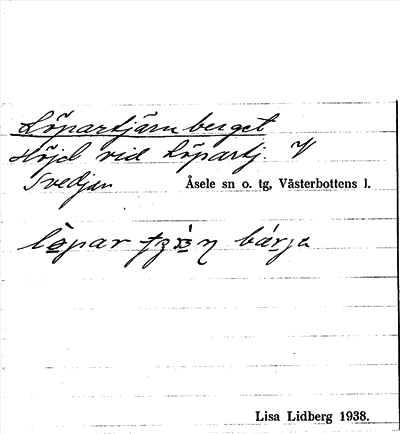 Löpartjärnberget
Höjd vid Löpartj. V
Svedjan Åsele sn o. tg, Västerbottens l.
Lisa Lidberg 1938.